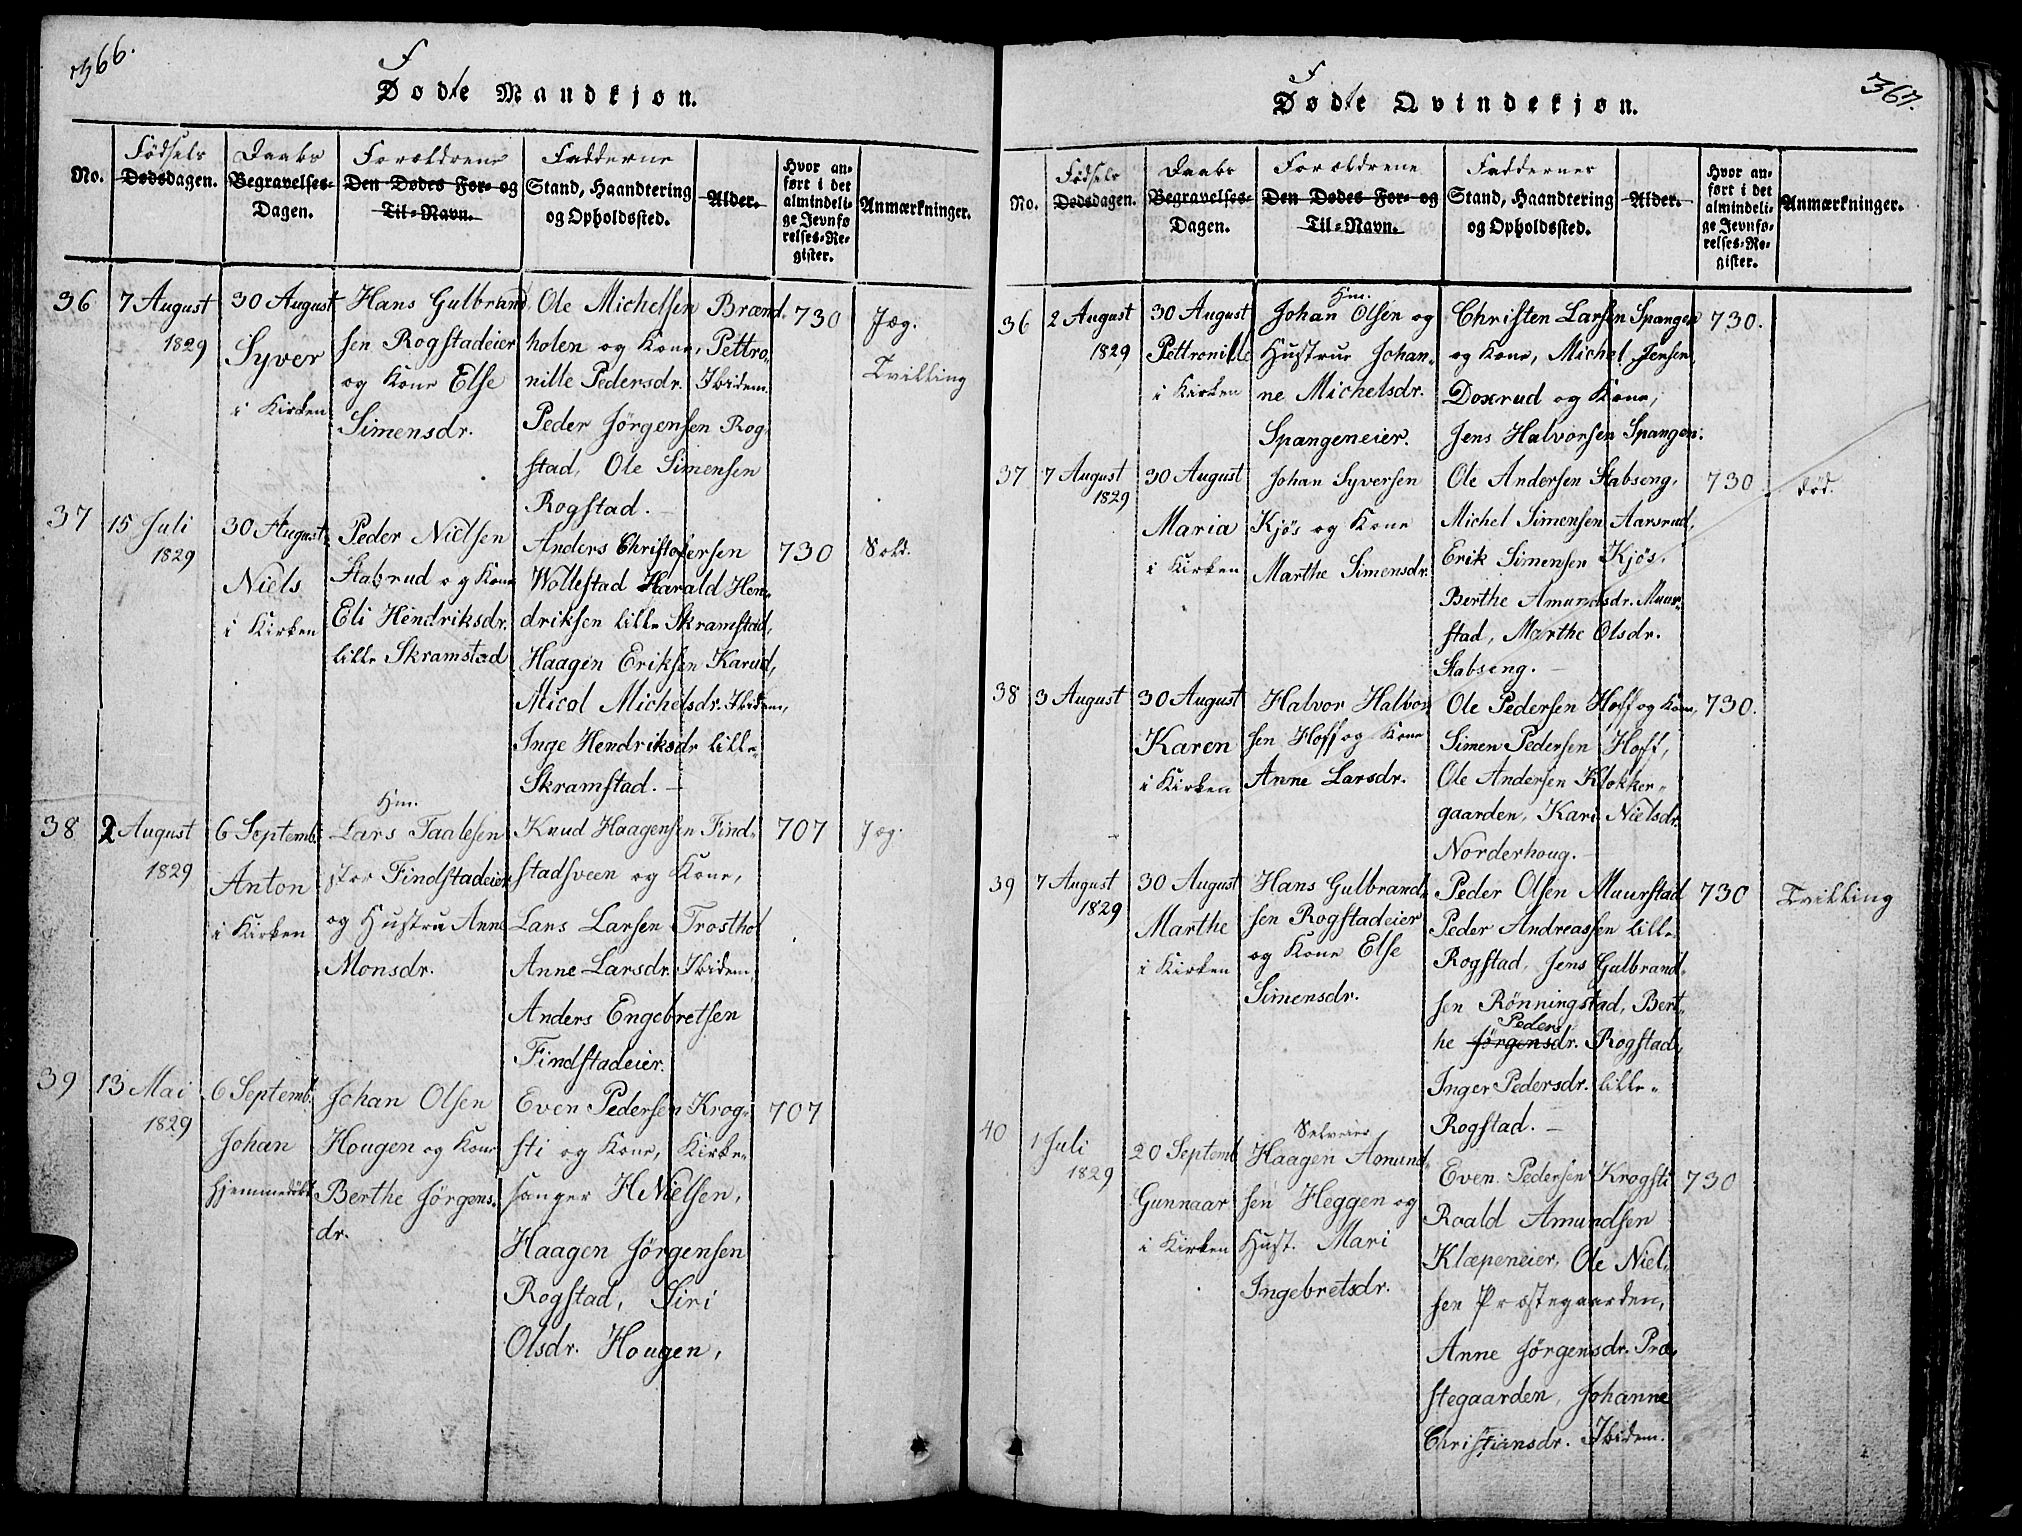 366.
Fødte Mandkjøn.
No.
Födsels
Dødsdagen.
Daabs
Begravelses-
Dagen.
Forældrene
Den Dødes For- og
Til-Navn.
Faddernes
Stand, Haandtering
og Opholdssted.
Alder.
Hvor an-
ført i det
almindeli-
ge Jevnfø
relses-Re-
gister.
Anmærkninger.
36
7 August
1829
30 August
Syver
i Kirken
Hans Gulbrand
sen Rogstadeier
og Kone Else
Simensdr.
Ole Michelsen Brænd
holen og Kone, Pettro-
nille Pedersdr. Ibidem.
Peder Jörgensen Rog-
stad, Ole Simensen
Rogstad.
730
Jæg.
Tvilling
37
15 Juli
1829
30 August
Niels
i Kirken
Peder Nielsen
Stabrud og Kone
Eli Hendriksdr.
lille Skramstad
Anders Christofersen
Wollestad Harald Hen-
driksen lille Skramstad,
Haagen Eriksen Karud,
Micol Michelsdr. Ibidem,
Inge Hendriksdr lille-
Skramstad.
730
Sold.
38
2 August
1829
6 Septemb.
Anton
i Kirken
Hm.
Lars Taalesen
stor Findstadeier
og Hustru Anne
Monsdr.
Knud Haagensen Find-
stadsveen og Kone,
Lars Larsen Trosthol
Anne Larsdr. Ibidem,
Anders Engebretsen
Findstadeier.
707
Jæg.
39
13 Mai
1829
6 Septemb.
Johan
hjemmedöbt
Johan Olsen
Hougen og Kone
Berthe Jörgens-
dr.
Even Pedersen Krog-
sti og Kone, Kirke-
sanger H Nielsen,
Haagen Jörgensen
Rogstad, Siri
Olsdr. Hougen,
707
367.
Fødte Qvindekjøn.
No.
Födsels
Dødsdagen.
Daabs
Begravelses-
Dagen.
Forældrene
Den Dødes For- og
Til-Navn.
Faddernes
Stand, Haandtering
og Opholdssted.
Alder.
Hvor an-
ført i det
almindeli-
ge Jevnfø-
relses-Re-
gister.
Anmærkninger.
36
2 August
1829
30 August
Pettronille
i Kirken
Hm.
Johan Olsen og
Hustrue Johan-
ne Michelsdr.
Spangeneier.
Christen Larsen Spangen
og Kone, Michel Jensen,
Doxrud og Kone,
Jens Halvorsen Spangen.
730.
37
7 August
1829
30 August
Maria
i Kirken
Johan Syversen
Kjös og Kone
Marthe Simensdr.
Ole Andersen Stabseng,
Michel Simensen Aarsrud,
Erik Simensen Kjös,
Berthe Amundsdr. Muur-
stad, Marthe Olsdr.
Stabseng.
730
död.
38
3 August
30 August
Karen
i Kirken
Halvor Halvor
sen Hoff og Kone
Anne Larsdr.
Ole Pedersen Hoff og Kone,
Simen Pedersen Hoff,
Ole Andersen Klokker-
gaarden, Kari Nielsdr.
Norderhoug.
730.
39
7 August
1829
30 August
Marthe
i Kirken
Hans Gulbrand-
sen Rogstadeier
og Kone Else
Simensdr.
Peder Olsen Muurstad
Peder Andreassen lille
Rogstad, Jens Gulbrand-
sen Rönningstad, Bert-
Peders
he Jörgensdr. Rogstad,
Inger Pedersdr. lille-
Rogstad.
730
Tvilling
40
1 Juli
1829
20 Septemb
Gunnaar
i Kirken
Selveier
Haagen Amund-
sen Heggen og
Hust. Mari
Ingebretsdr.
Even Pedersen Krogsti
Roald Amundsen
Klæpeneier, Ole Niel-
sen Præstegaarden,
Anne Jörgensdr. Præ-
stegaarden, Johanne
Christiansdr. Ibidem.
730